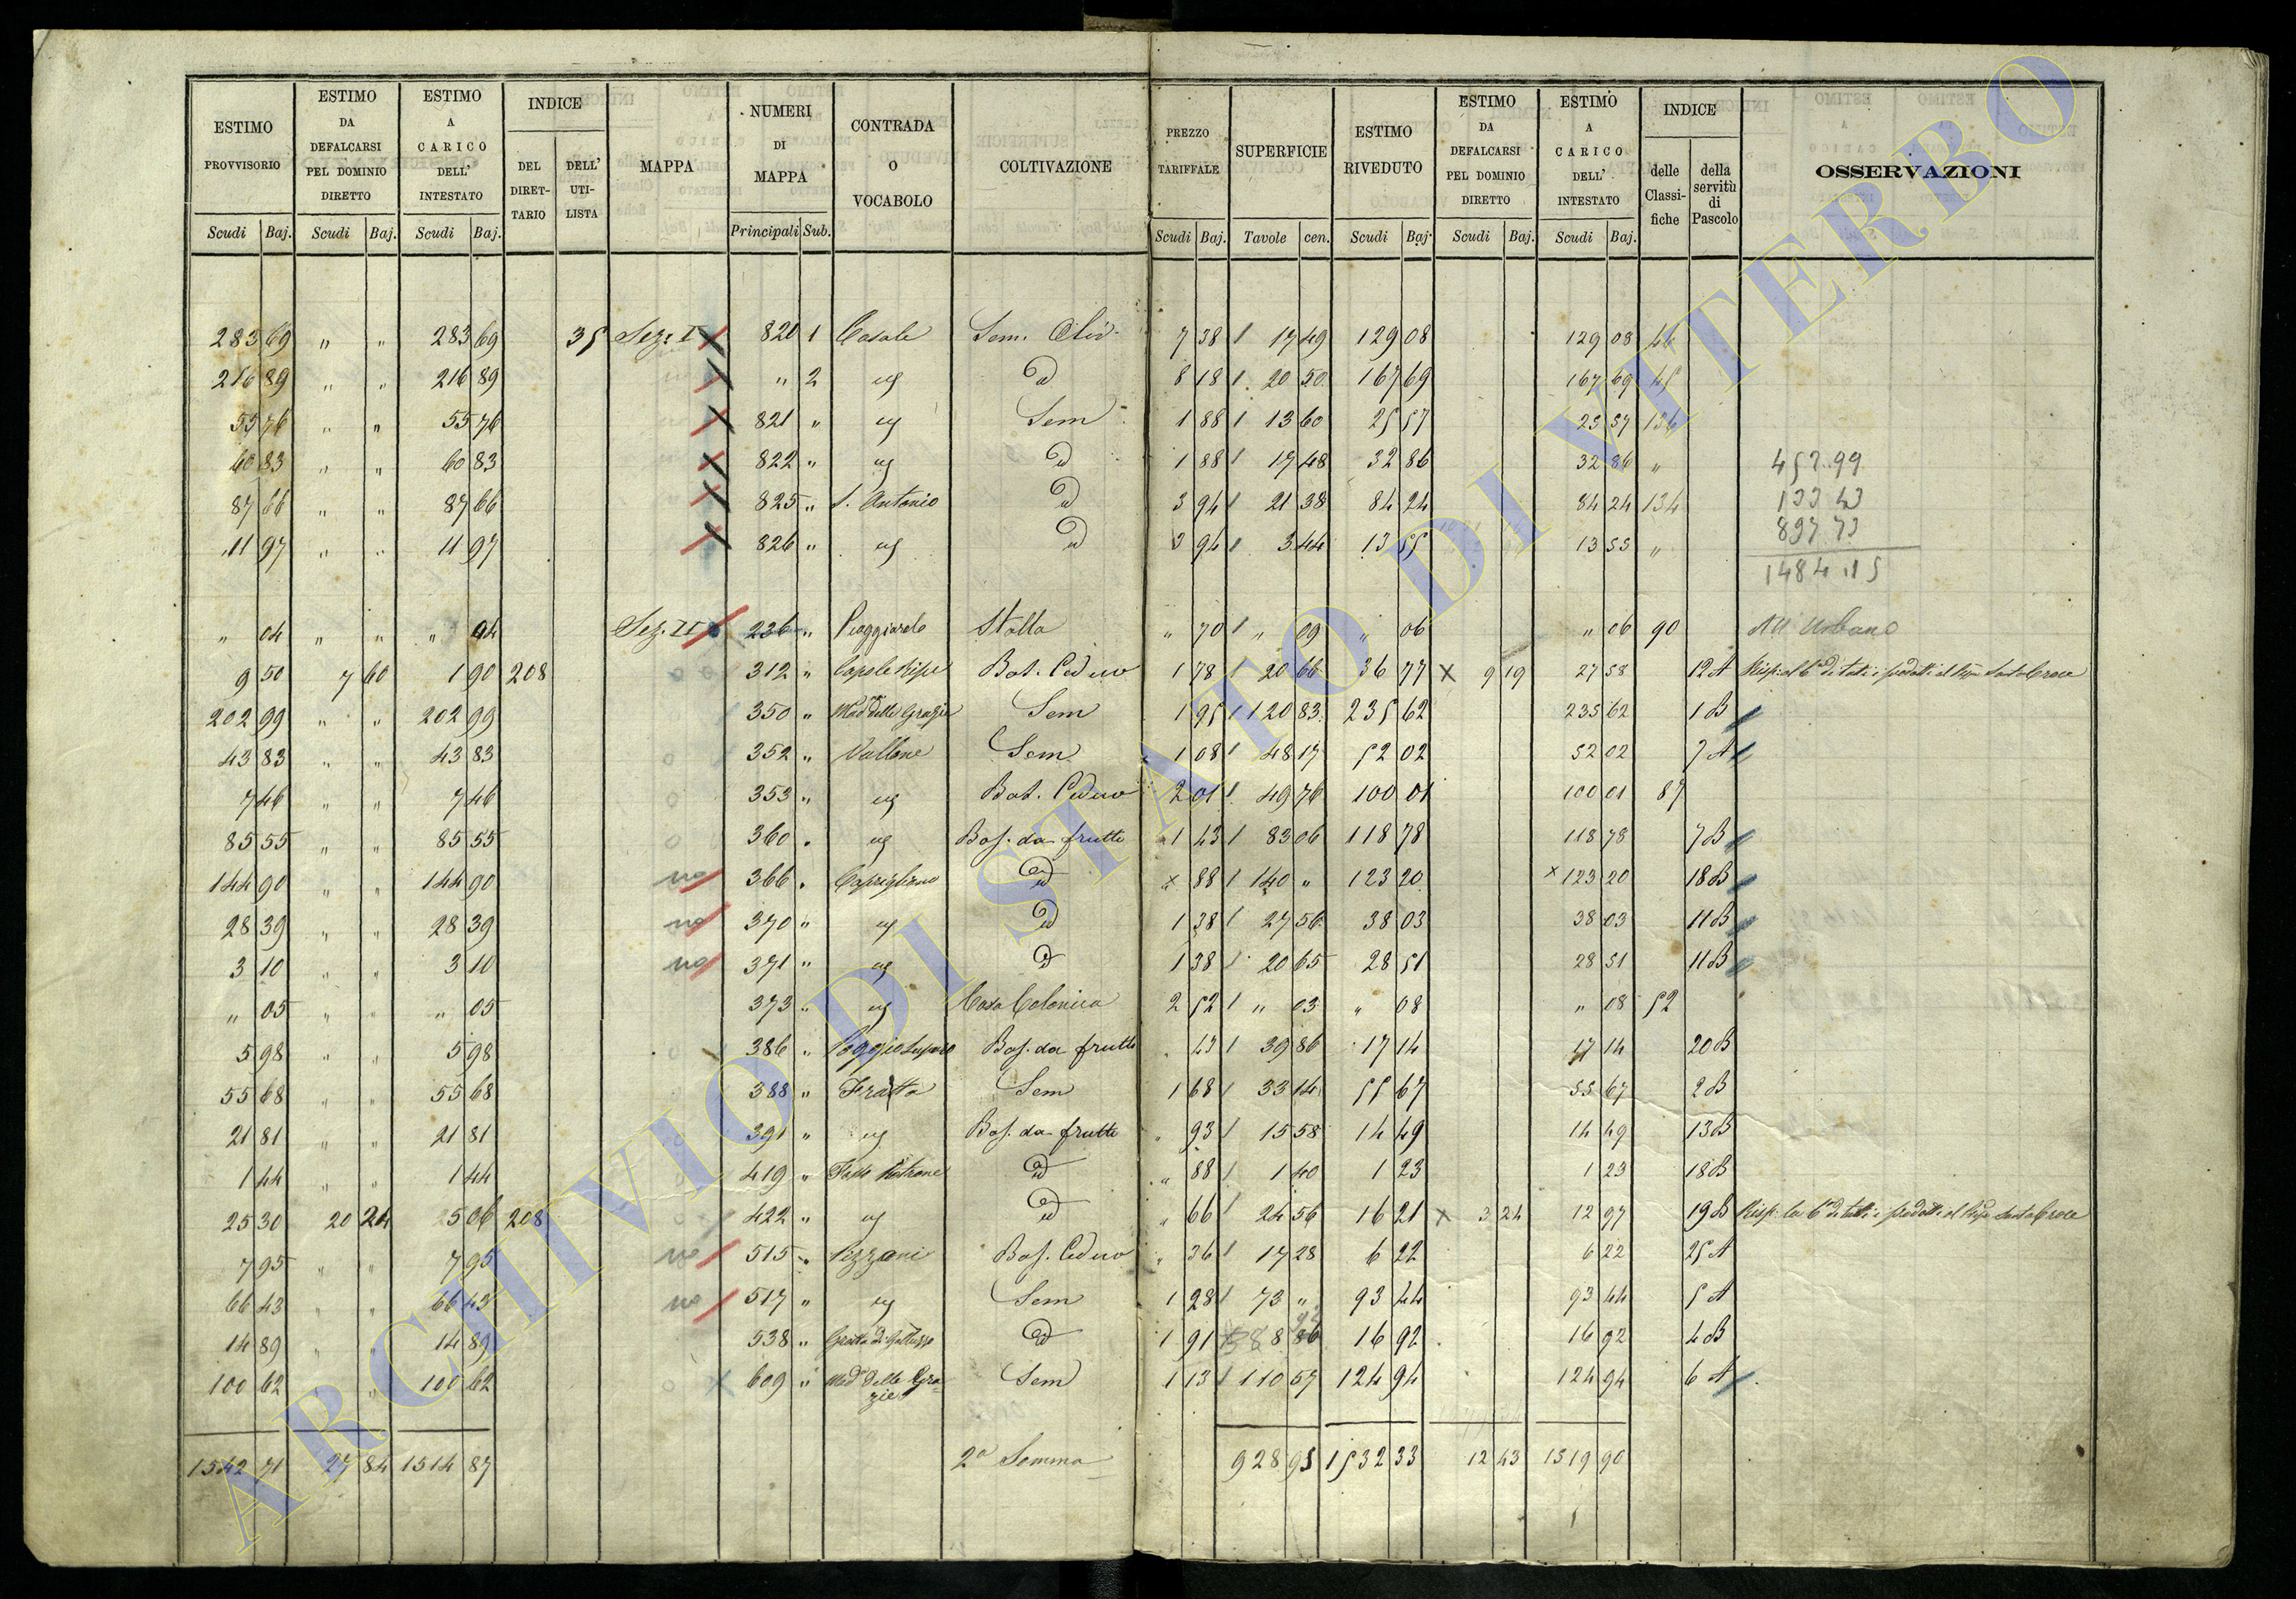 ESTIMO PROVVISORIO | ESTIMO DA DEFALCARSI PEL DOMINIO DIRETTO | ESTIMO A CARICO DELL' INTESTATO | INDICE DEL DIRETTARIO | DELL' UTILISTA | MAPPA | NUMERI DI MAPPA | CONTRADA O VOCABOLO | COLTIVAZIONE | PREZZO TARIFFALE | SUPERFICIE | ESTIMO RIVEDUTO | ESTIMO DA DEFALCARSI PEL DOMINIO DIRETTO | ESTIMO A CARICO DELL' INTESTATO | INDICE delle Classifiche | della servitù di Pascolo | OSSERVAZIONI
Scudi Baj. Scudi Baj. Scudi Baj. Principali Sub. Scudi Baj. Tavole cen. Scudi Baj. Scudi Baj. Scudi Baj.
283 69 " " 283 69 35 Sez. I 820 1 Casale Sem. Oliv. 7 38 17 49 129 08 129 08 46
216 89 " " 216 89 " 2 8 18 20 50 167 69 167 69 45
55 76 " " 55 76 821 " Sem 1 88 13 60 25 57 25 57 136
60 83 " " 60 83 822 " 1 88 17 48 32 86 32 86 " 452.99
87 66 " " 87 66 825 " S. Antonio 3 94 21 38 84 24 84 24 134 133 43
11 97 " " 11 97 826 " 3 94 3 44 13 55 13 55 " 897 73
1484.15
" 04 " " " 04 Sez. II 236 " Poggiarelo Stalla " 70 " 09 " 06 " 06 90 All Urbano
9 50 7 60 1 90 208 312 " Capo le Ripe Bos. Ceduo 1 78 20 66 36 77 X 9 19 27 58 12 A
202 99 " " 202 99 350 " Mad delle Grazie Sem 1 95 120 83 235 62 235 62 1 B
43 83 " " 43 83 352 " Vallone Sem 1 08 48 17 52 02 52 02 7 A
7 46 " " 7 46 353 " Bos. Ceduo 2 01 49 76 100 01 100 01 87
85 55 " " 85 55 360 " Bos. da frutto 1 43 83 06 118 78 118 78 7 B
144 90 " " 144 90 no 366 " Caprigliano x 88 140 " 123 20 x 123 20 18 B
28 39 " " 28 39 no 370 " 1 38 27 56 38 03 38 03 11 B
3 10 " " 3 10 no 371 " 1 38 20 65 28 51 28 51 11 B
" 05 " " " 05 373 " Casa Colonica 2 52 " 03 " 08 " 08 52
5 98 " " 5 98 386 " Bos. da frutto " 43 39 86 17 14 17 14 20 B
55 68 " " 55 68 388 " Fratta Sem 1 68 33 14 55 67 55 67 2 B
21 81 " " 21 81 391 " Bos. da frutto " 93 15 58 14 49 14 49 13 B
1 44 " " 1 44 419 " " 88 1 40 1 23 1 23 18 B
25 30 20 24 5 06 208 422 " " 66 24 56 16 21 X 3 24 12 97 19 B
7 95 " " 7 95 no 515 " Pizzani Bos. Ceduo " 36 17 28 6 22 6 22 25 A
66 43 " " 66 43 no 517 " Sem 1 28 73 " 93 44 93 44 5 A
14 89 " " 14 89 538 " 1 91 8 86 16 92 16 92 4 B
100 62 " 100 62 609 " Mad delle Grazie Sem 1 13 110 57 124 94 124 94 6 A
1542 71 27 84 1514 87 2a Somma 928 95 1532 33 12 43 1519 90
ARCHIVIO DI STATO DI VITERBO